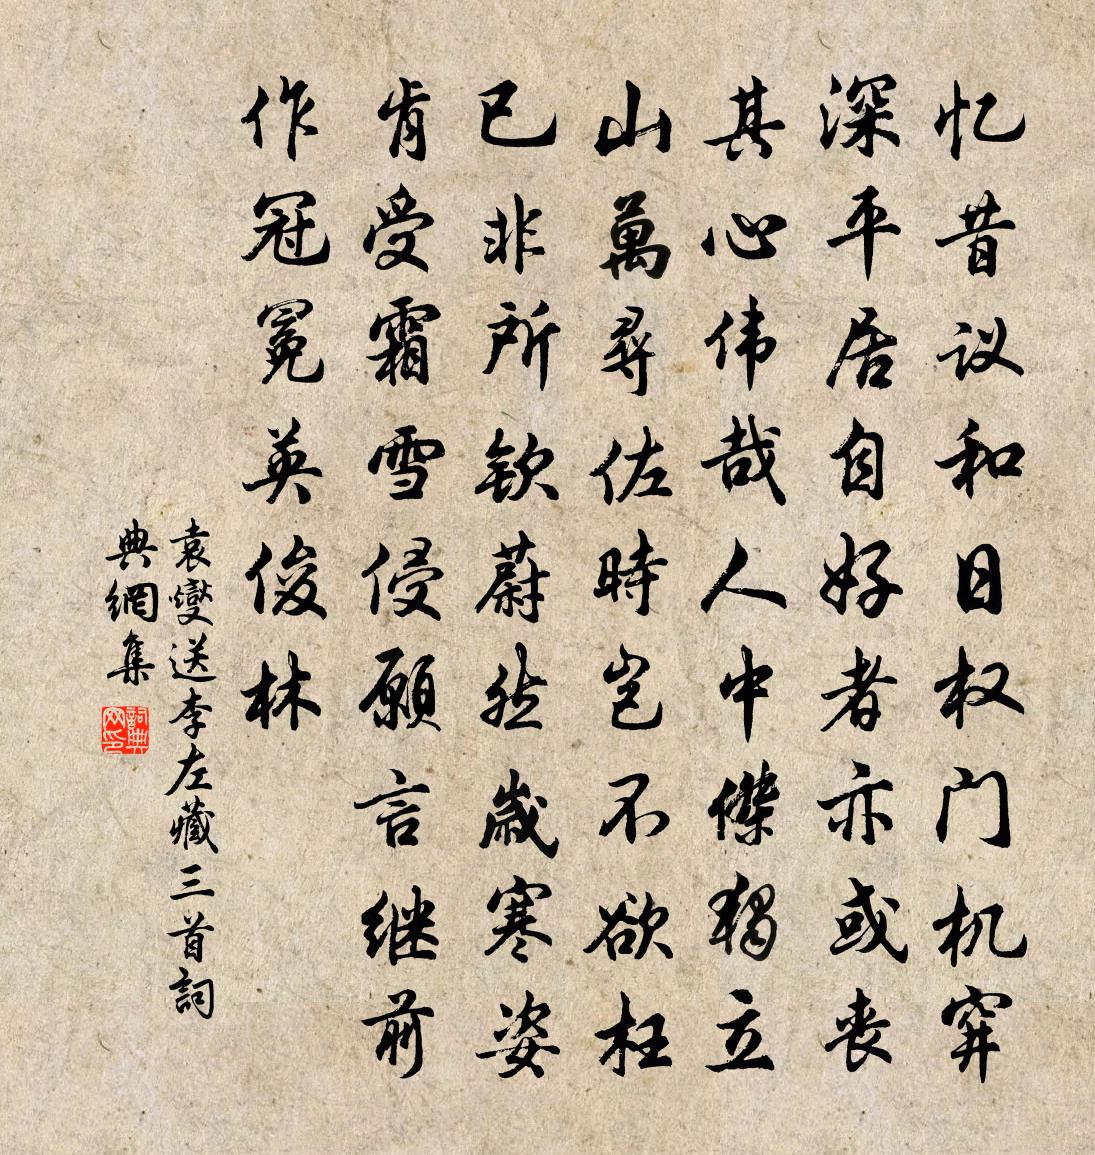 忆昔议和日权门机穽
深平居自好者亦或丧
其心伟哉人中傑獨立
山萬尋佐時岂不欲枉
已非所钦蔚然歲寒姿
肯受霜雪侵願言继前
作冠冕英俊林
袁燮送李左藏三首詞
典網集
詞典
网印